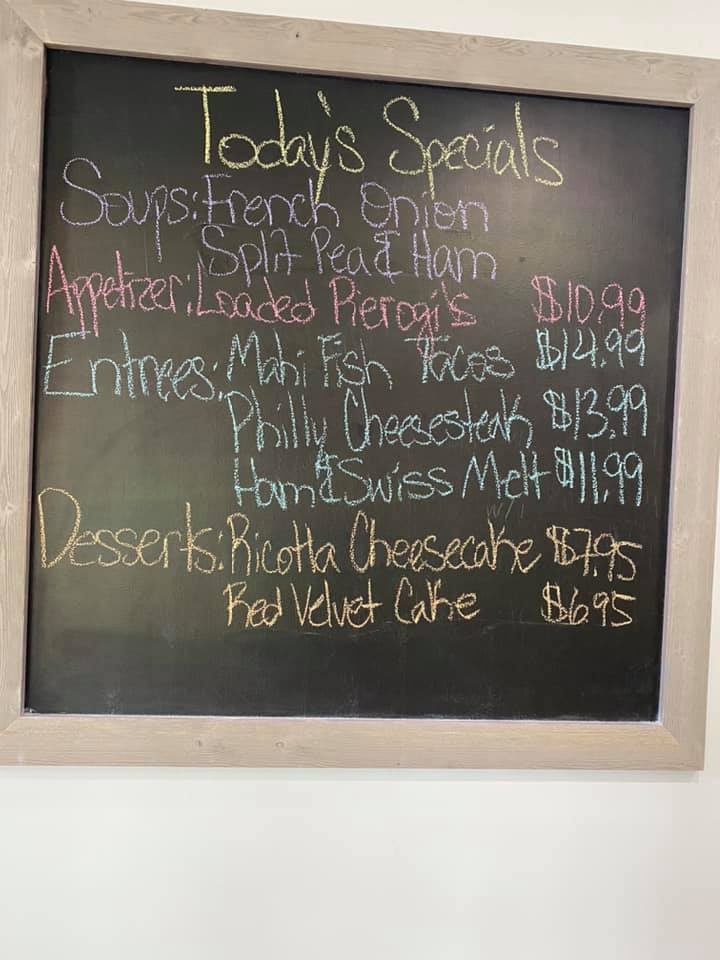 Today's Specials
Soups: French Onion
Split Pea & Ham
Appetizer: Loaded Perogi's $10.99
Entrees: Mahi Fish Tacos $14.99
Philly Cheesesteak $13.99
Ham & Swiss Melt $11.99
Desserts: Ricotta Cheesecake $7.95
Red Velvet Cake $6.95